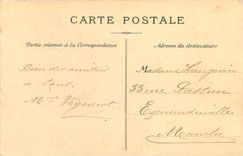 CARTE POSTALE
Partie réservée à la Correspondance
Adresse du destinataire
Bien des amitiés
à tous
Madame
rue Pasteur
Equeurdreville
Manche